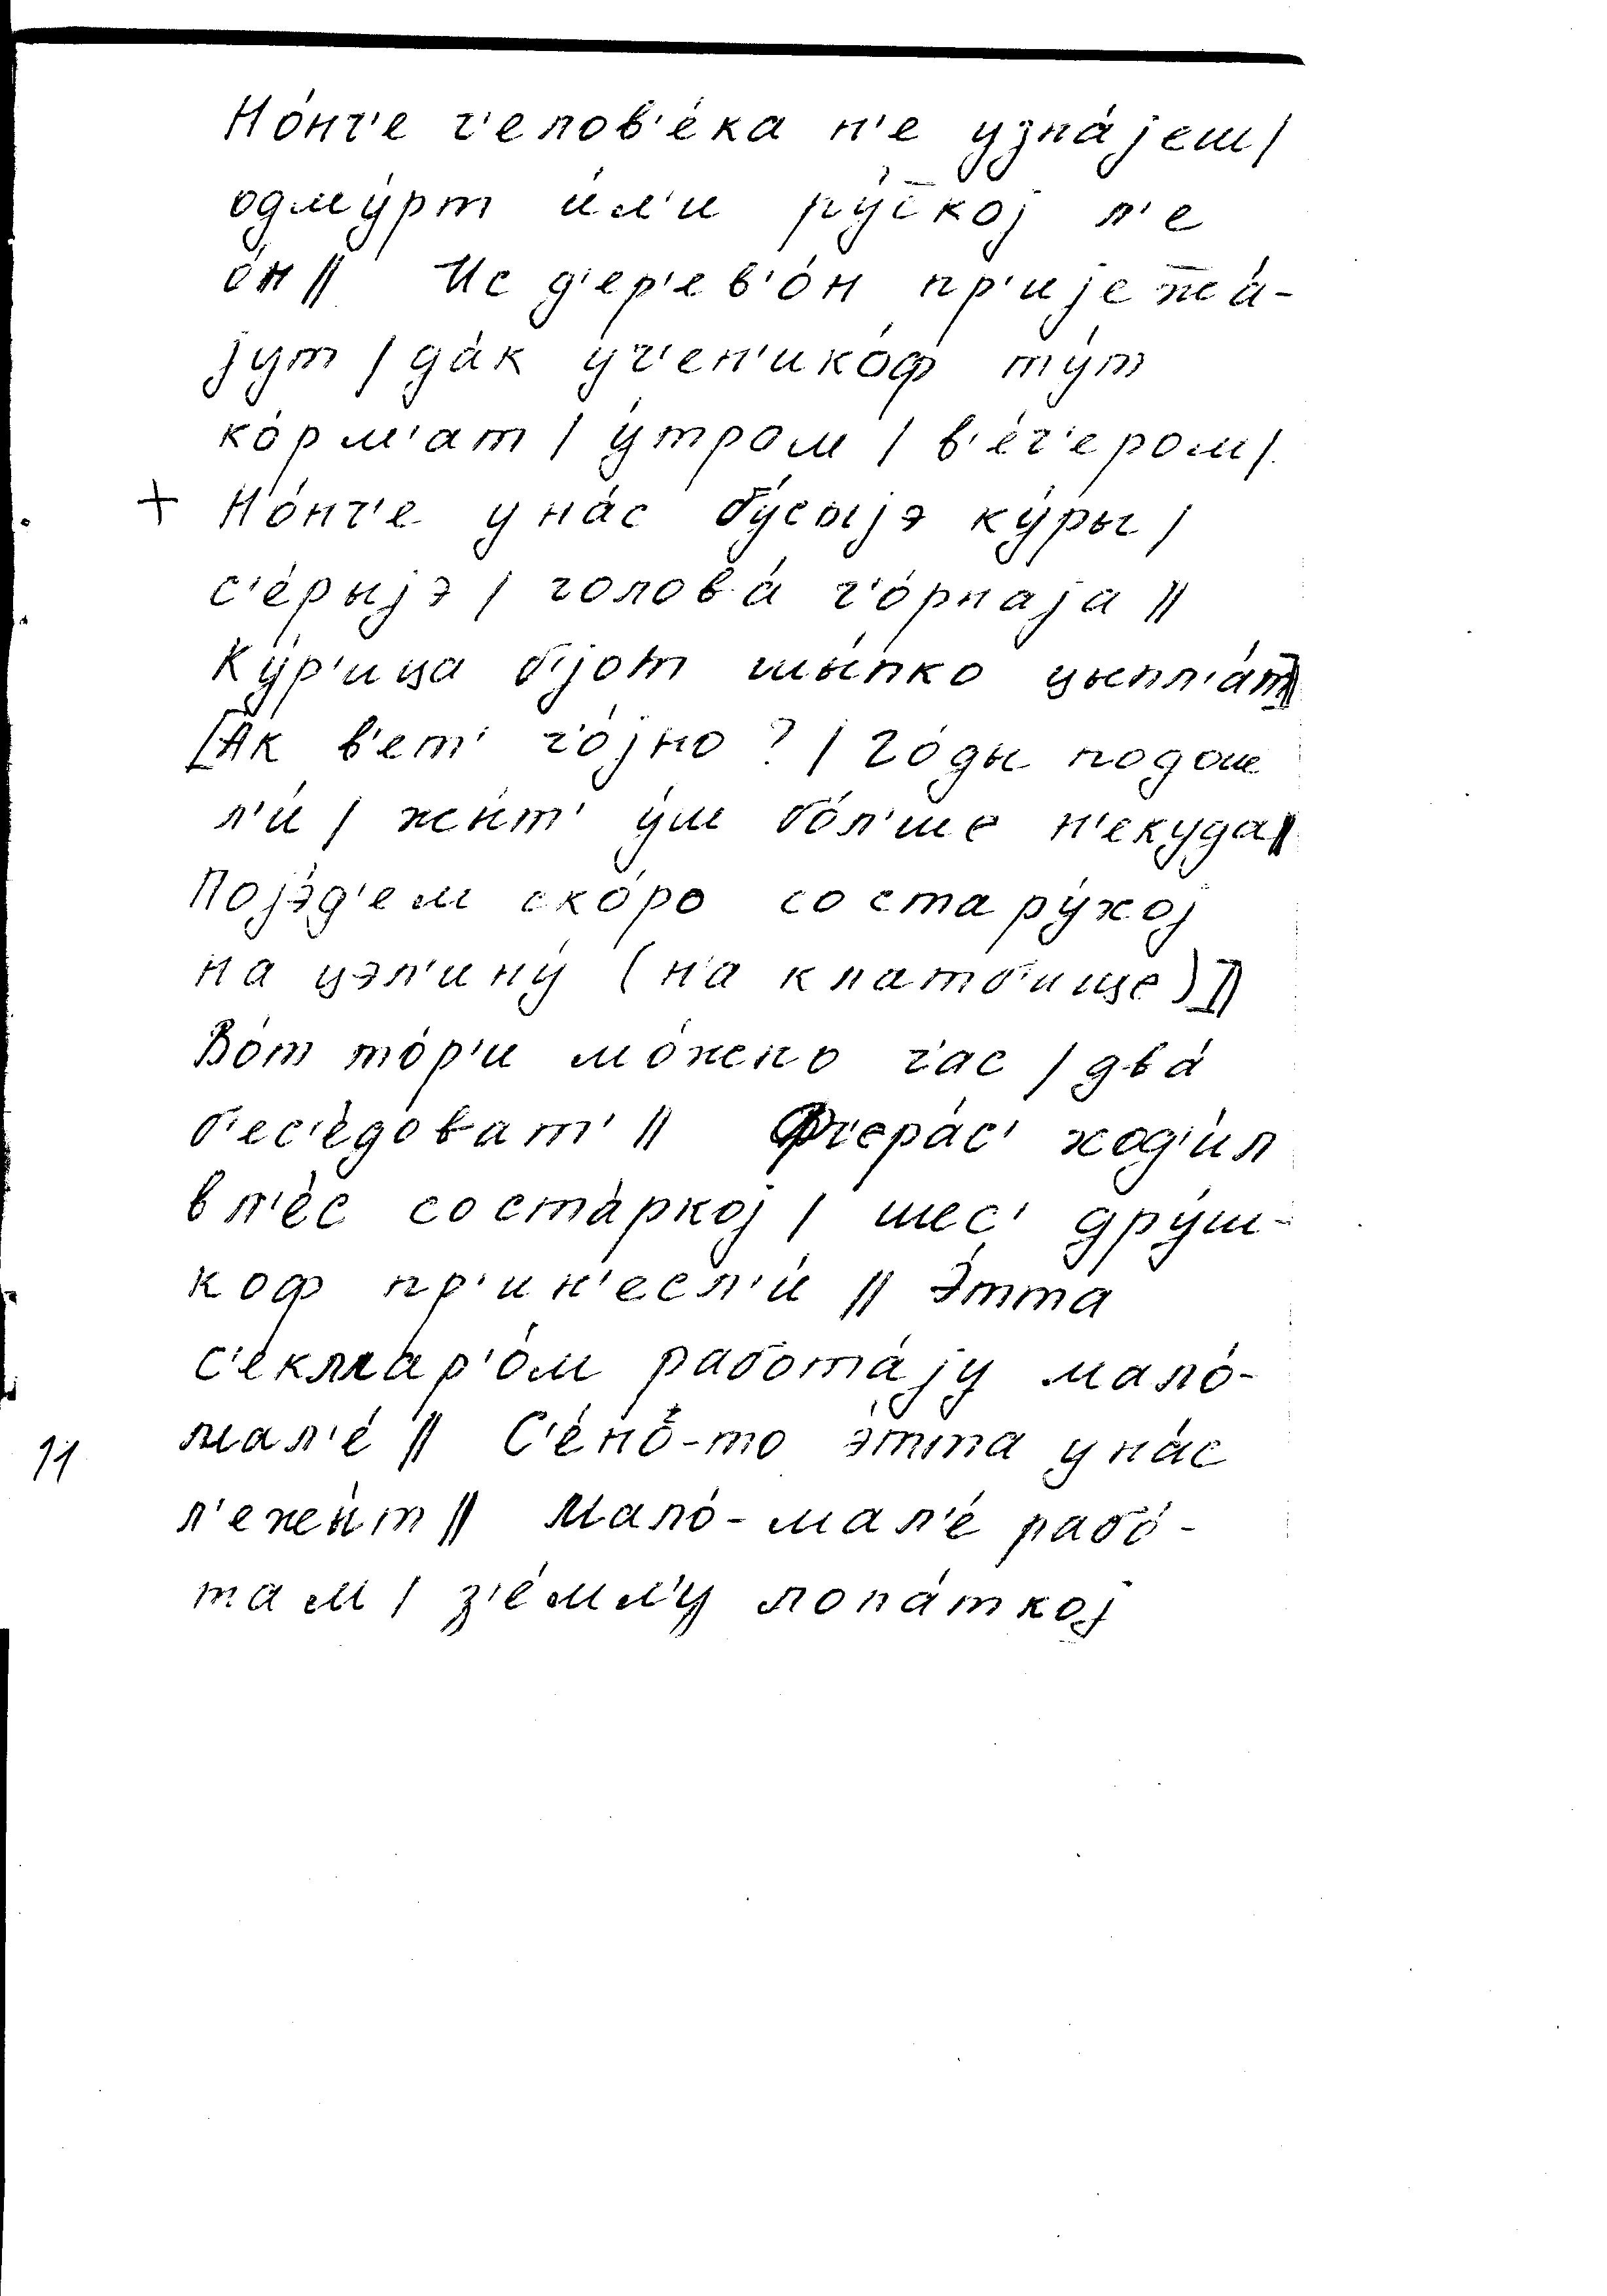 Но́нч'е ч'елов'е́ка н'е узна́јеш/
одму́рт и́л'и ру́с̄кој л'е
о́н // Ис д'ер'ев'о́н пр'ијеж̄а́-
јут / да́к уч'ен'ико́ф ту́т
ко́рм'ат / у́тром / в'е́ч'ером/
+ Но́нч'е у на́с бу́сыјэ ку́ры /
с'е́рыјэ / голова́ ч'о́рнаја //
Ку́р'ица б'јот шы́пко цыпл'а́т //
[Ак в'ет' ч'о́јно? / Го́ды подош
л'и́ / жы́т' у́ш бо́л'ше н'екуда //
Појэ́д'ем ско́ро со стару́хој
на цэл'ину́ (на кладб'ище)] //
Во́т то́р'и мо́жно ч'ас / два́
б'ес'е́доват' // Фч'ера́с' ход'и́л
в л'е́с со ста́ркој / шес' дру́ш-
коф пр'ин'есл'и́ // Э́тта
с'еклар'о́м рабо́та́ју мало́-
мал'е́ // С'е́но́-то э́тта у на́с
11 л'ежы́т // Мало́-мал'е́ рабо́-
там / з'е́мл'у лопа́ткој